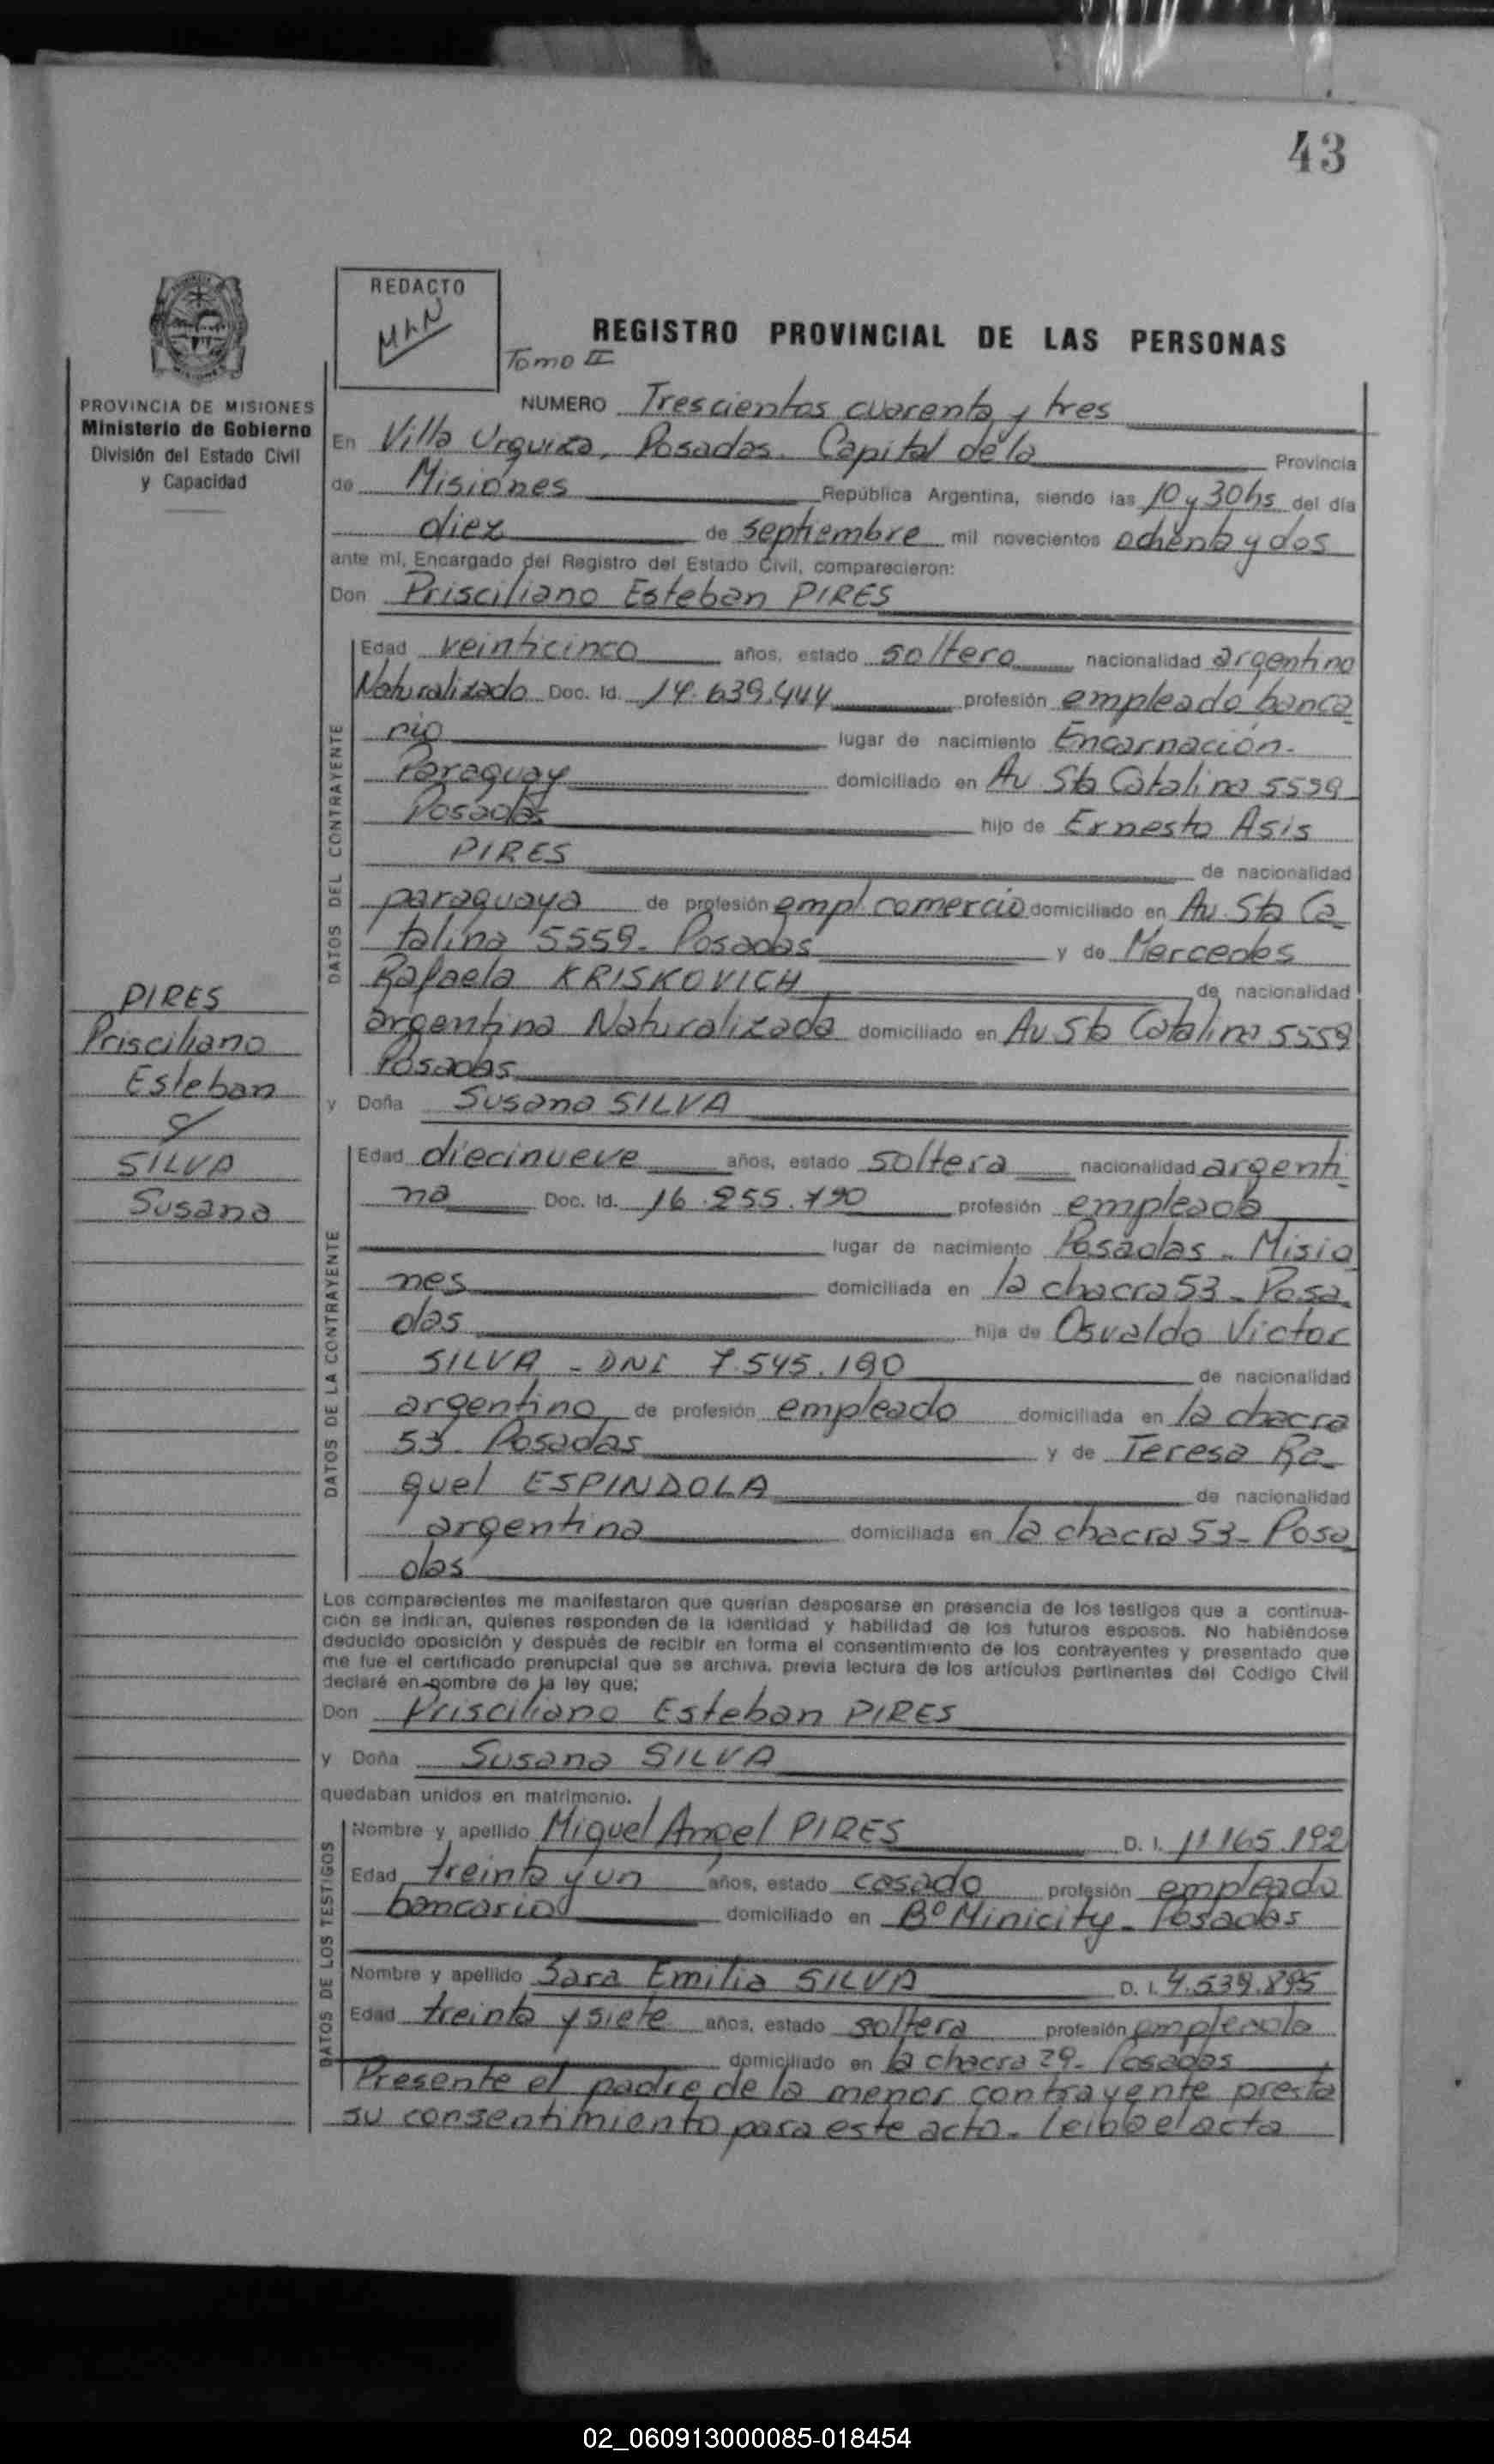 43
REDACTO
MLN
REGISTRO PROVINCIAL DE LAS PERSONAS
Tomo II
PROVINCIA DE MISIONES
Ministerio de Gobierno
División del Estado Civil
y Capacidad
NUMERO Trescientos cuarenta y tres
En Villa Urquiza, Posadas. Capital de la Provincia
de Misiones República Argentina, siendo las 10 y 30 hs del día
diez de septiembre mil novecientos ochenta y dos
ante mí, Encargado del Registro del Estado Civil, comparecieron:
Don Prisciliano Esteban PIRES
DATOS DEL CONTRAYENTE
Edad veinticinco años, estado soltero nacionalidad argentino
Naturalizado Doc. Id. 14.639.444 profesión empleado banca
rio lugar de nacimiento Encarnación-
Paraguay domiciliado en Av Sta Catalina 5559
Posadas hijo de Ernesto Asis
PIRES de nacionalidad
paraguaya de profesión empl. comercio domiciliado en Av. Sta Ca
talina 5559- Posadas y de Mercedes
Rafaela KRISKOVICH de nacionalidad
argentina Naturalizada domiciliado en Av Sta Catalina 5559
Posadas
PIRES
Prisciliano
Esteban
y
SILVA
Susana
y Doña Susana SILVA
DATOS DE LA CONTRAYENTE
Edad diecinueve años, estado soltera nacionalidad argenti
na Doc. Id. 16.255.790 profesión empleada
lugar de nacimiento Posadas - Misio
nes domiciliada en la chacra 53 - Posa
das hija de Osvaldo Victor
SILVA - DNI 7.545.190 de nacionalidad
argentino de profesión empleado domiciliada en la chacra
53- Posadas y de Teresa Ra-
quel ESPINDOLA de nacionalidad
argentina domiciliada en la chacra 53- Posa
das
Los comparecientes me manifestaron que querían desposarse en presencia de los testigos que a continua-
ción se indican, quienes responden de la identidad y habilidad de los futuros esposos. No habiéndose
deducido oposición y después de recibir en forma el consentimiento de los contrayentes y presentado que
me fue el certificado prenupcial que se archiva, previa lectura de los artículos pertinentes del Código Civil
declaré en nombre de la ley que:
Don Prisciliano Esteban PIRES
y Doña Susana SILVA
quedaban unidos en matrimonio.
DATOS DE LOS TESTIGOS
Nombre y apellido Miguel Angel PIRES D. I. 11.165.192
Edad treinta y un años, estado casado profesión empleado
bancario domiciliado en Bº Minicity - Posadas
Nombre y apellido Sara Emilia SILVA D. I. 4.539.895
Edad treinta y siete años, estado soltera profesión empleada
domiciliado en la chacra 29- Posadas
Presente el padre de la menor contrayente presta
su consentimiento para este acto- leida el acta
02_060913000085-018454